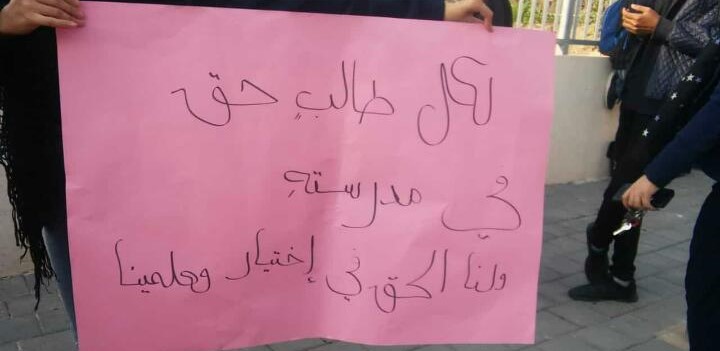 لكل طالبٍ حق
في مدرستهِ
ولنا الحق في إختيار ومعلمينا